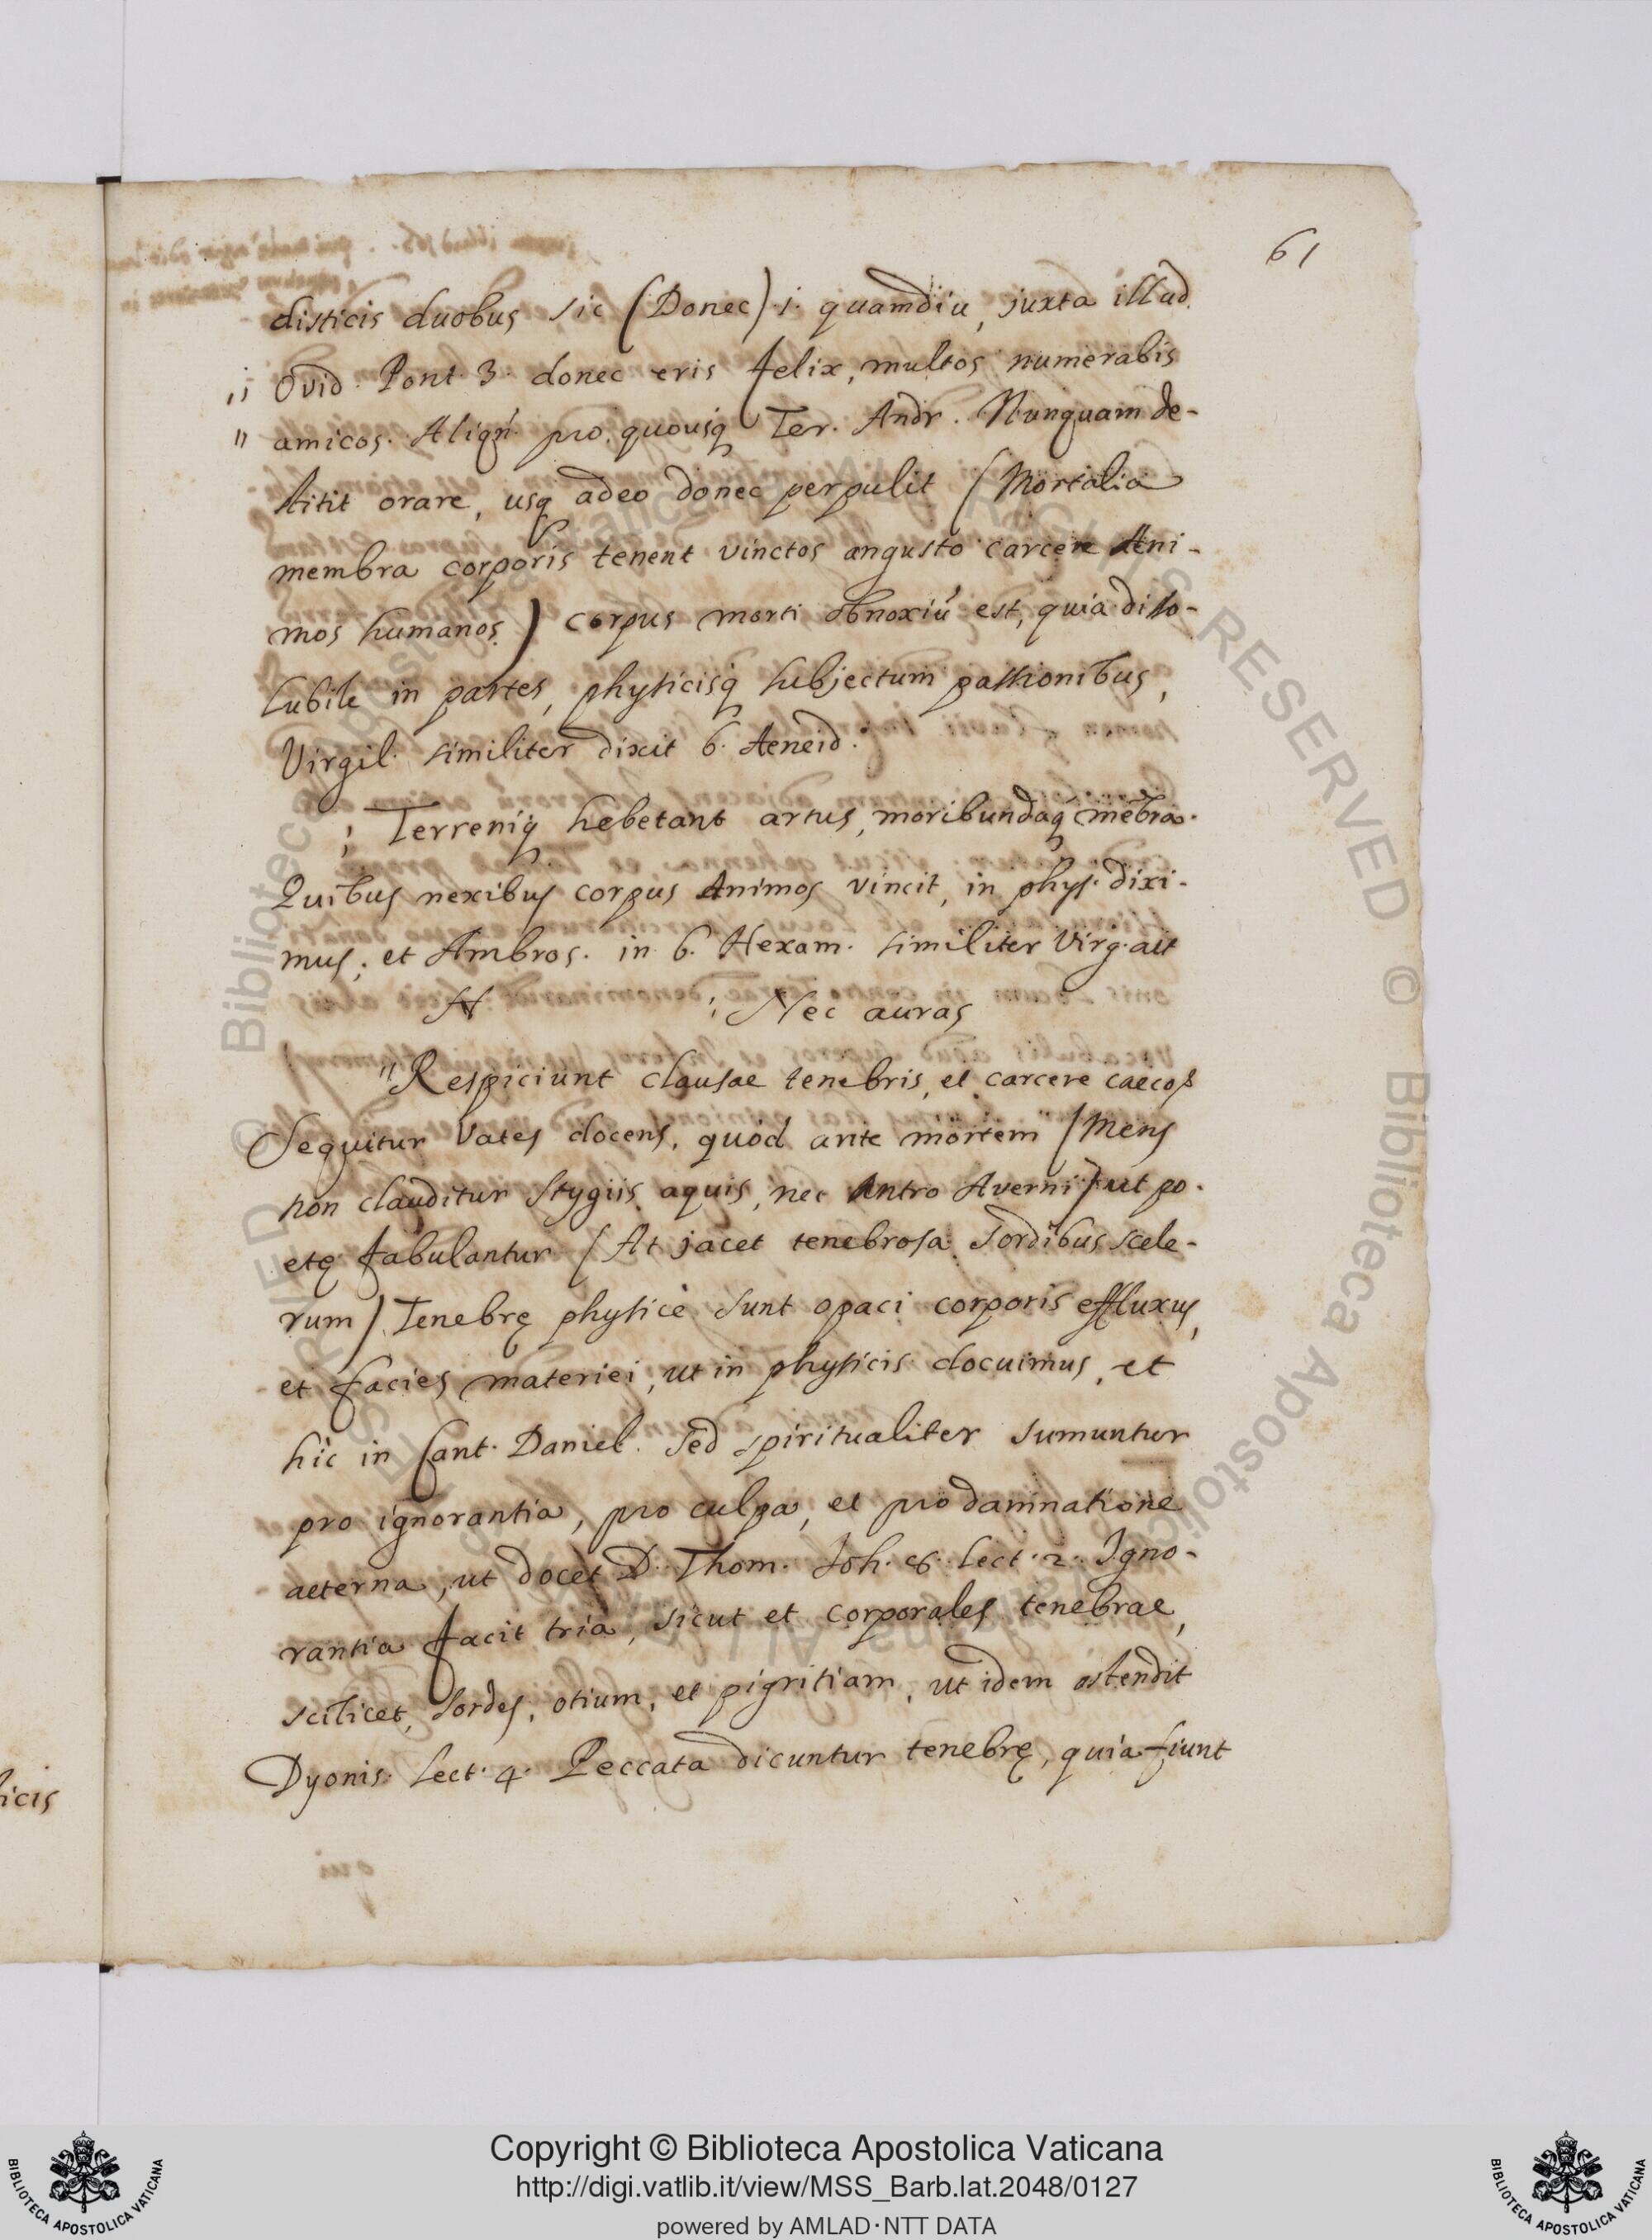 61
disticis duobus sic (Donec) .i. quamdiu, juxta illud
,, Ovid. Pont. 3. donec eris felix, multos numerabis
" amicos. Aliqñ. pro quousq Ter. Andr. Nunquam de-
stitit orare, usq adeo donec perpulit (Mortalia
membra corporis tenent vinctos angusto carcere Ani-
mos humanos) corpus morti obnoxiũ est, quia disso-
lubile in partes, physicisq subjectum passionibus,
Virgil. similiter dixit 6. Aeneid.
; Terreniq hebetant artus, moribundaq mẽbra.
Quibus nexibus corpus Animos vincit, in phys. dixi-
mus; et Ambros. in 6. Hexam. similiter Virg. ait
; Nec auras
" Respiciunt clausae tenebris, et carcere caeco
Sequitur Vates docens, quòd ante mortem (Mens
non clauditur Stygiis aquis, nec Antro Averni) ut po-
etę fabulantur (At jacet tenebrosa sordibus scele-
rum) Tenebrę physicè sunt opaci corporis effluxus,
et facies materiei, ut in physicis docuimus, et
hìc in Cant. Daniel. Sed spiritualiter sumuntur
pro ignorantia, pro culpa, et pro damnatione
aeterna, ut docet D. Thom. Joh. 8. lect. 2. Igno-
rantia facit tria, sicut et corporales tenebrae,
scilicet, sordes, otium, et pigritiam, ut idem ostendit
Dyonis. lect. 4. Peccata dicuntur tenebrę, quia fiunt
icis
© Biblioteca Apostolica Vaticana ALL RIGHTS RESERVED
Copyright © Biblioteca Apostolica Vaticana
http://digi.vatlib.it/view/MSS_Barb.lat.2048/0127
powered by AMLAD·NTT DATA
BIBLIOTECA APOSTOLICA VATICANA
BIBLIOTECA APOSTOLICA VATICANA